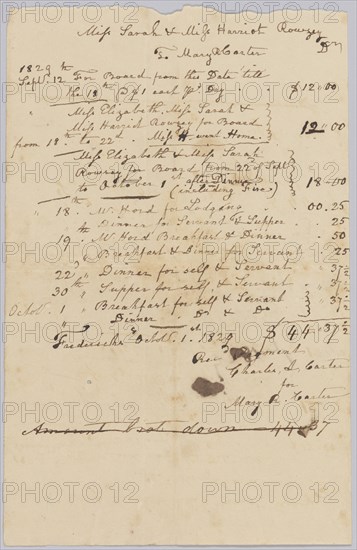 Miss Sarah & Miss Harriot Rowzey
To Mary R Carter Dr
1829
Sept. 12th For Board from this Date till
the 18th @ $1 each pr. Day $12.00
" Miss Elizabeth, Miss Sarah &
Miss Harriot Rowzey for Board
from 18th to 22d. Miss H went Home. 12.00
Miss Elizabeth & Miss Sarah
Rowzey for Board from 22d of Sept
to October 1st after Dinner
(including Fire) 18.00
" 18th Mr Hord for Lodging 00.25
" " Dinner to Servant & Supper .25
" 19th Mr Hord Breakfast & Dinner .50
" " Breakfast & Dinner for Servant .25
" 22d " Dinner for self & Servant .37½
" 30th " Supper for self & Servant .37½
Octob. 1 " Breakfast for self & Servant
" " Dinner Do & Do .37½
Fredericksbg Octob. 1st 1829 $44.37½
Recd Payment
Charles L Carter
for
Mary R. Carter
Amount brot down 44.37